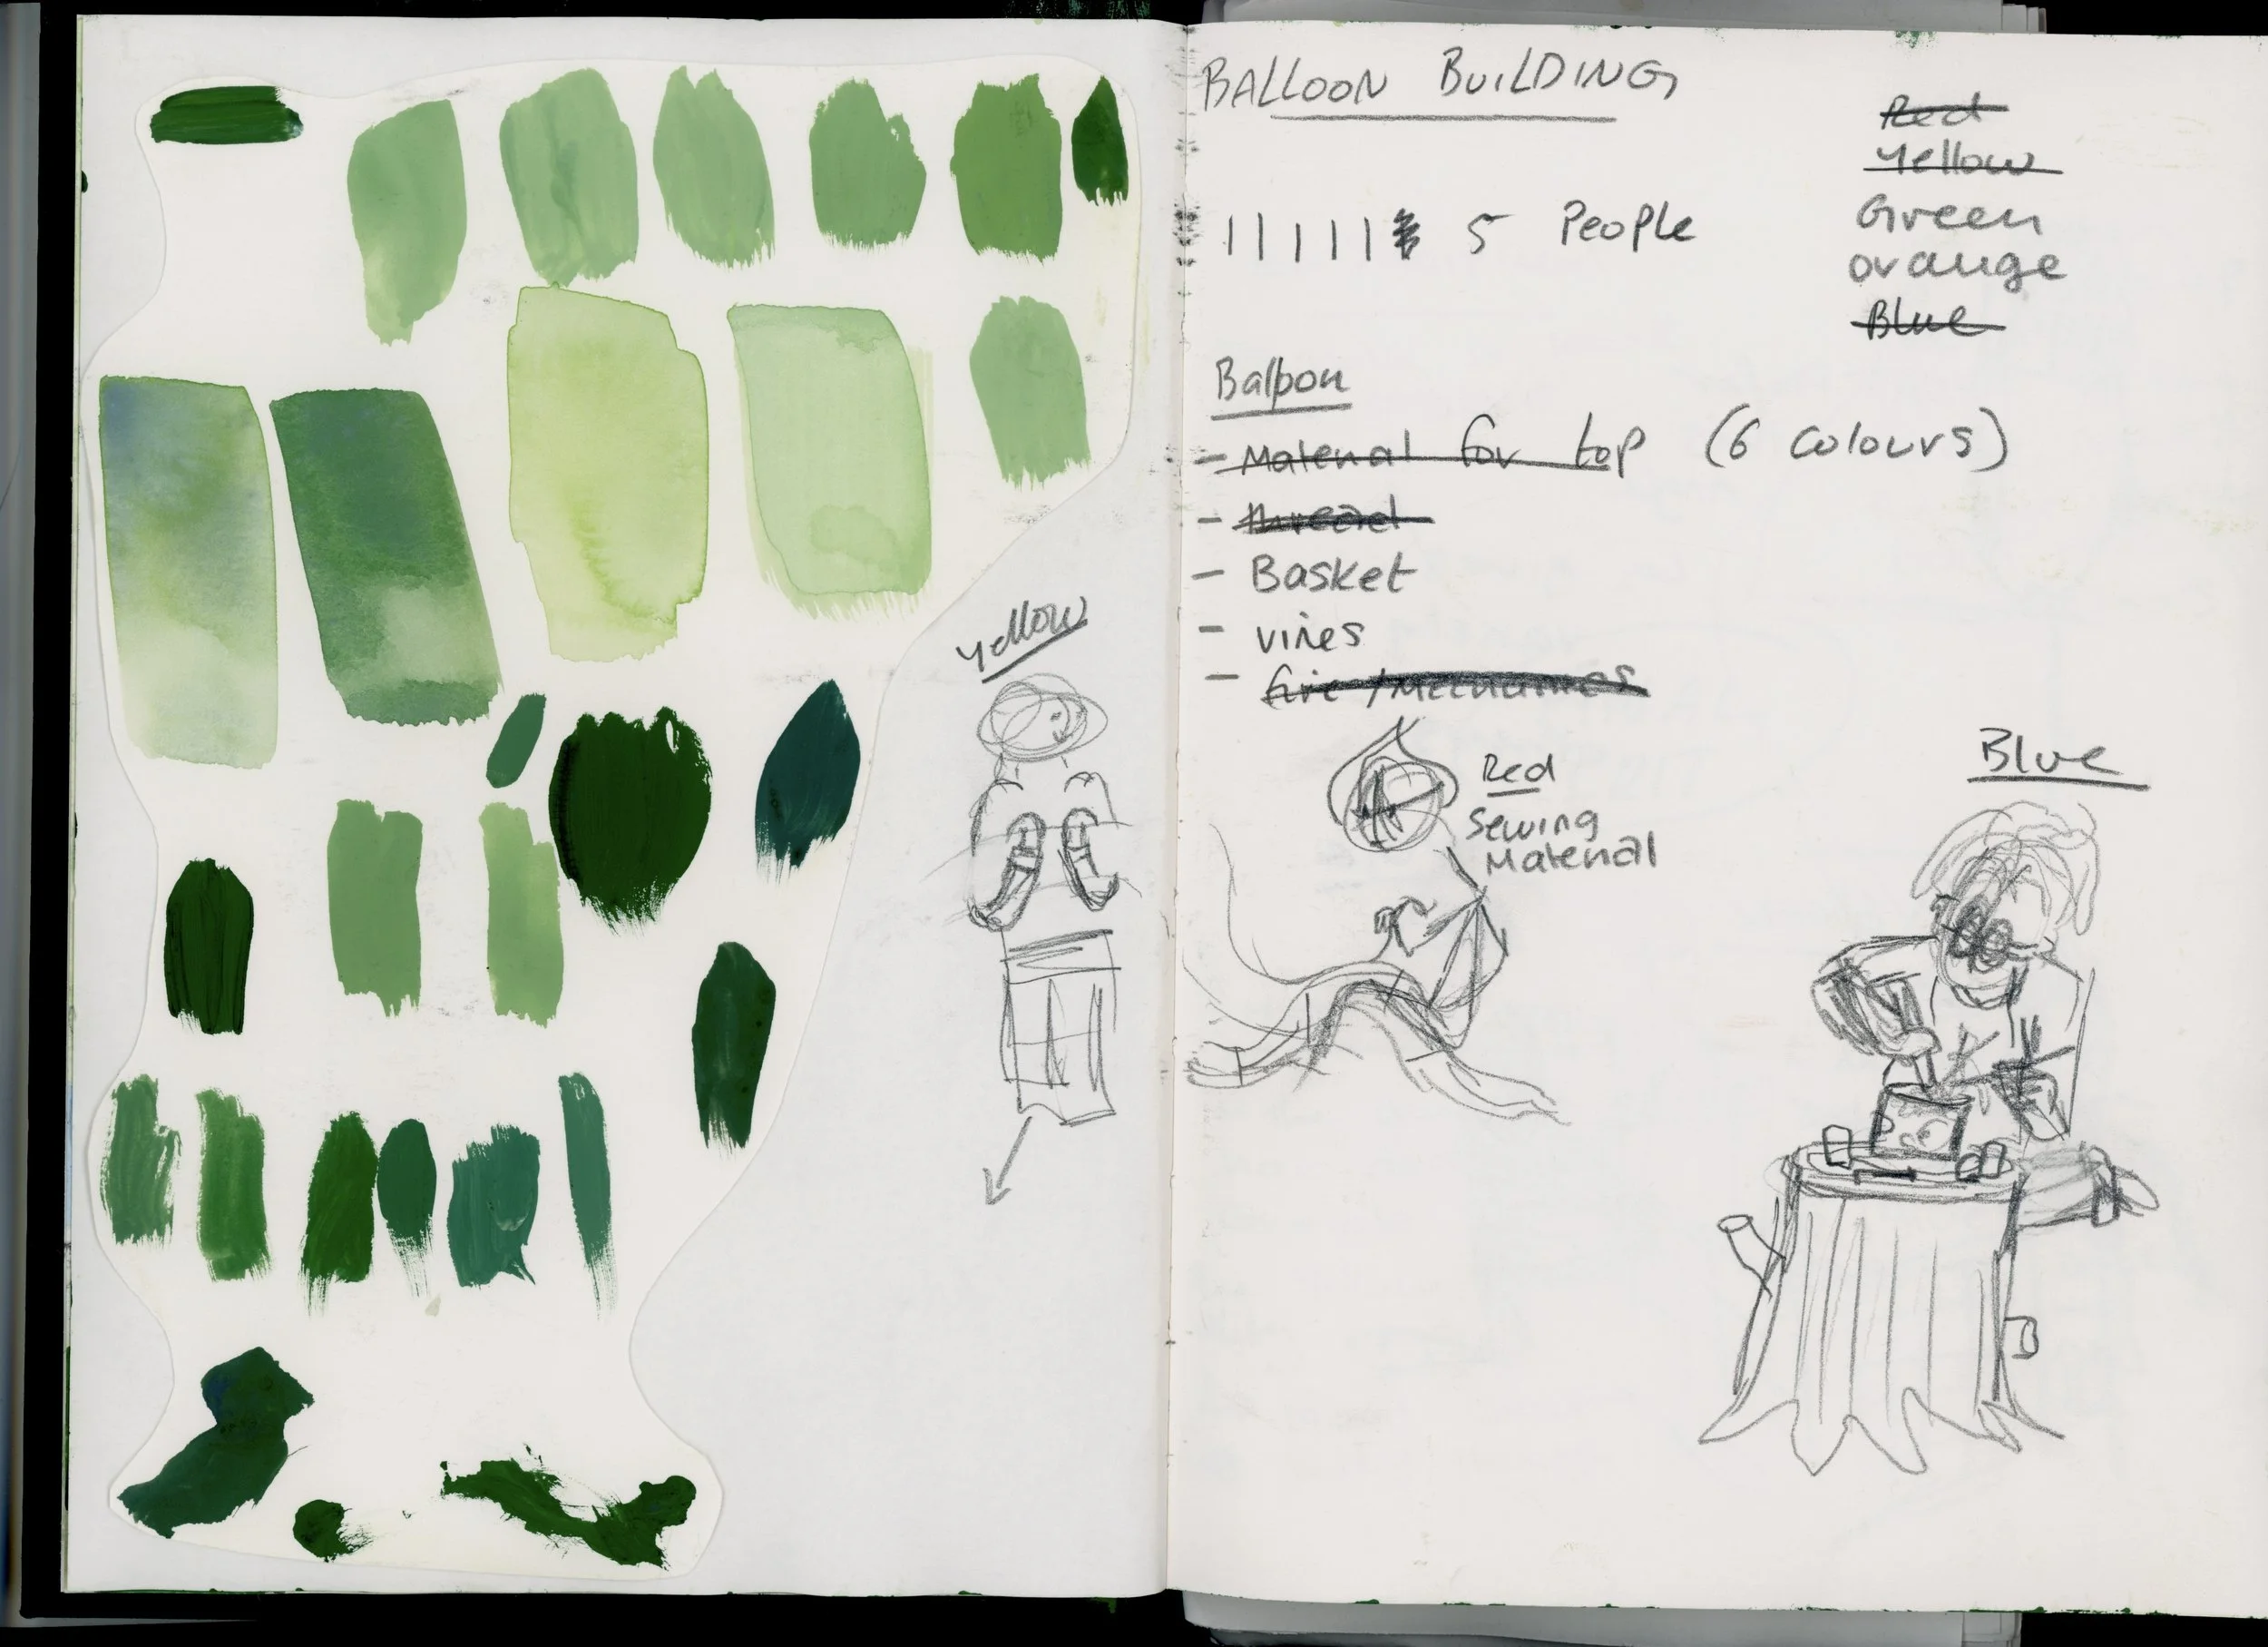 BALLOON BUILDING
Red
Yellow
Green
orange
Blue
5 People
Balloon
- Material for top (6 colours)
- thread
- Basket
- vines
- fire / Mechanics
Yellow
Red
Sewing
Material
Blue